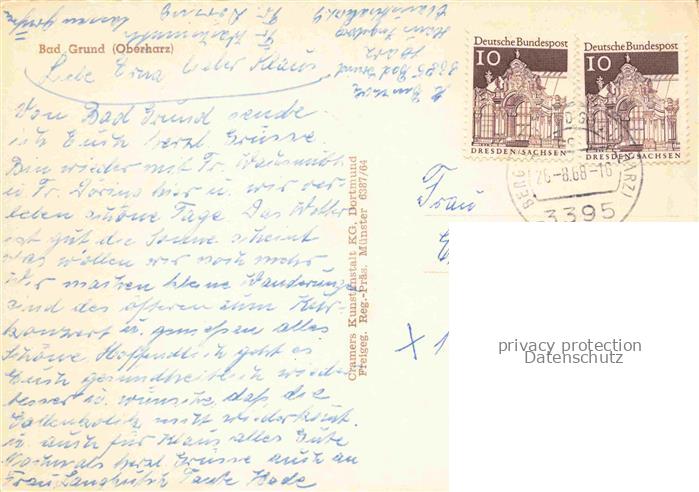 Bad Grund (Oberharz)
Liebe Erna lieber Klaus
Von Bad Grund sende
ich Euch herzl. Grüsse.
Bin wieder mit Fr.
u. Fr. Dorina hier u. wir ver
leben schöne Tage Das Wetter
ist gut die Sonne scheint
was wollen wir noch mehr
Wir machen kleine Wanderunge
sind des öfteren zum Kur-
konzert u. geniessen alles
Schöne Hoffentlich geht es
Euch gesundheitlich wieder
besser u. wünsche, daß die
Gallenkolik nicht wiederkommt.
u. auch für Klaus alles Gute
Nochmals herzl. Grüsse auch an
Frau Tante
Cramers Kunstanstalt KG. Dortmund
Freigeg. Reg.-Präs. Münster 6387/64
Deutsche Bundespost
10
DRESDEN/SACHSEN
Deutsche Bundespost
10
DRESDEN/SACHSEN
26.-8.68-16
3395
Frau
X 1
privacy protection
Datenschutz